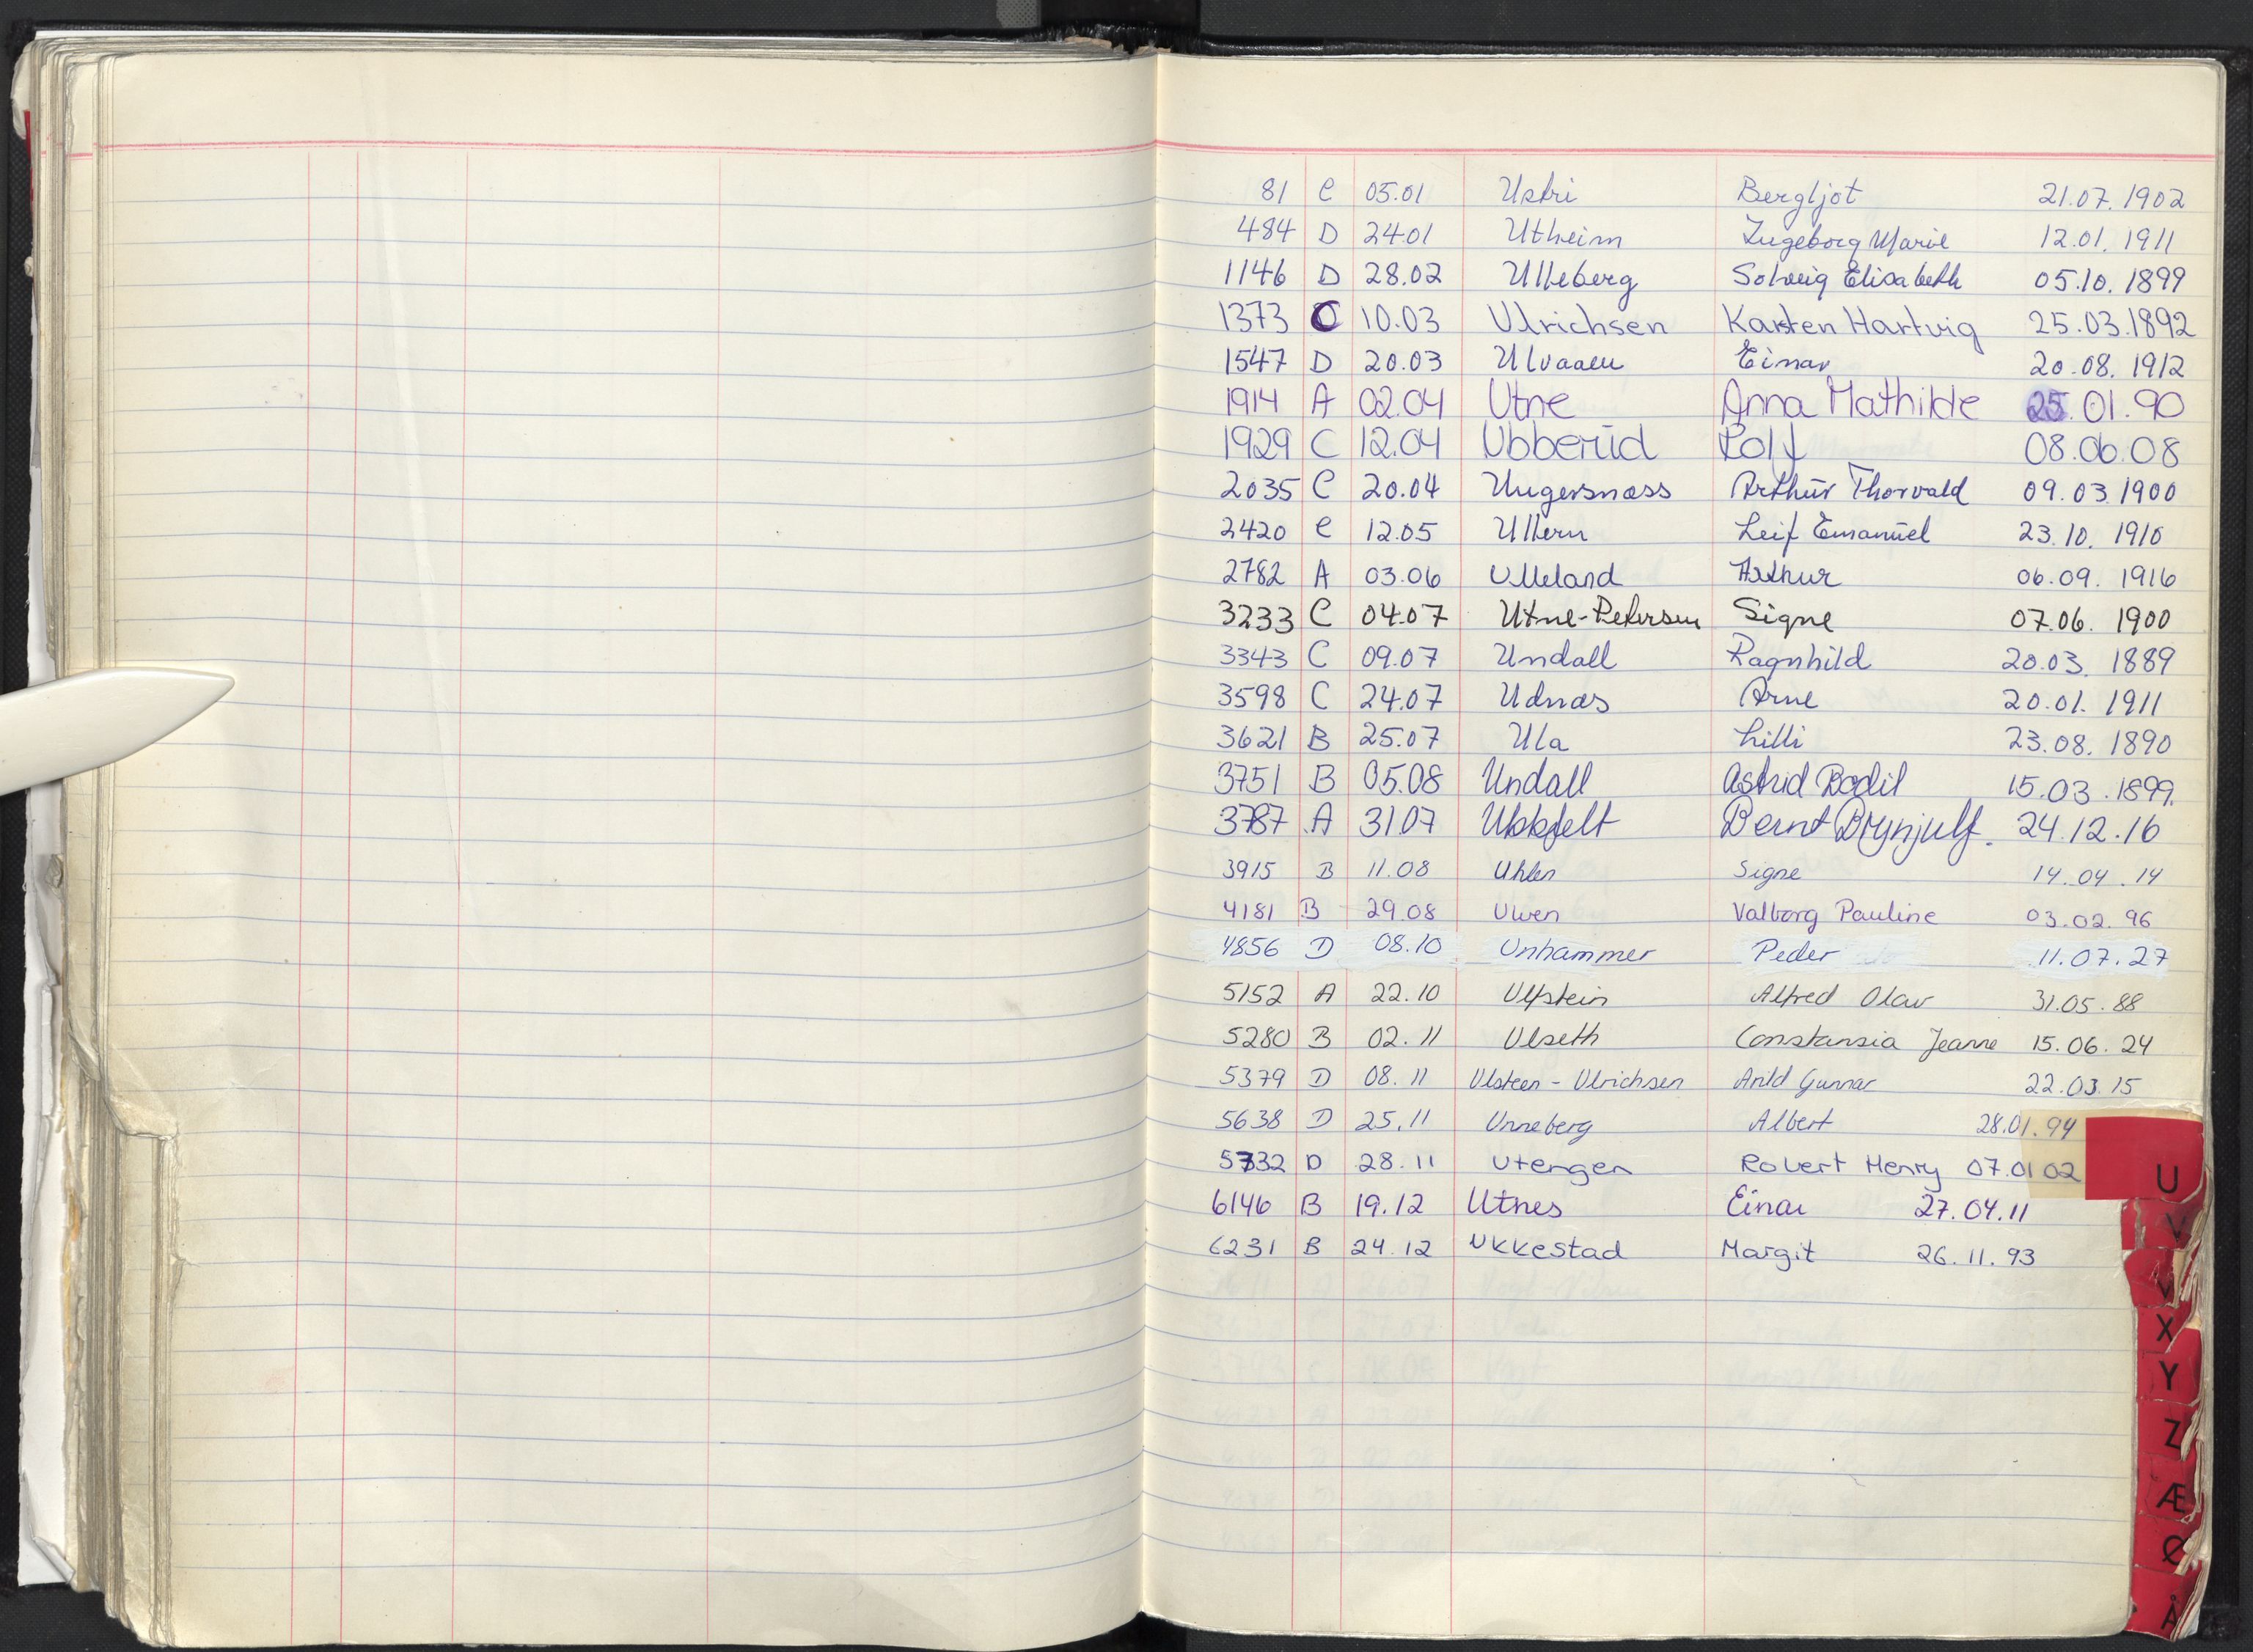 81 C 05.01 Ustri Bergljot 21.07.1902
484 D 24.01 Utheim Ingeborg Marie 12.01.1911
1146 D 28.02 Ulleberg Solveig Elisabeth 05.10.1899
1373 C 10.03 Ulrichsen Karsten Hartvig 25.03.1892
1547 D 20.03 Ulvaaen Einar 20.08.1912
1914 A 02.04 Utne Anna Mathilde 25.01.90
1929 C 12.04 Ubberud Rolf 08.06.08
2035 C 20.04 Ungersnæss Arthur Thorvald 09.03.1900
2420 C 12.05 Ullern Leif Emanuel 23.10.1910
2782 A 03.06 Ulleland Arthur 06.09.1916
3233 C 04.07 Utne-Petersen Signe 07.06.1900
3343 C 09.07 Undall Ragnhild 20.03.1889
3598 C 24.07 Udnæs Arne 20.01.1911
3621 B 25.07 Ula Lilli 23.08.1890
3751 B 05.08 Undall Astrid Bodil 15.03.1899.
3787 A 31.07 Bernt Brynjulf. 24.12.16
3915 B 11.08 Uhlen Signe 14.04.14
4181 B 29.08 Ulven Valborg Pauline 03.02.96
4856 D 08.10 Unhammer Peder 11.07.27
5152 A 22.10 Ulfstein Alfred Olav 31.05.88
5280 B 02.11 Ulseth Constansia Jeanne 15.06.24
5379 D 08.11 Ulsteen - Ulrichsen Arild Gunnar 22.03.15
5638 D 25.11 Unneberg Albert 28.01.94
5732 D 28.11 Utengen Robert Henry 07.01 02
6146 B 19.12 Utnes Einar 27.04.11
6231 B 24.12 Ukkestad Margit 26.11.93
U
V
X
Y
Z
Æ
Ø
Å